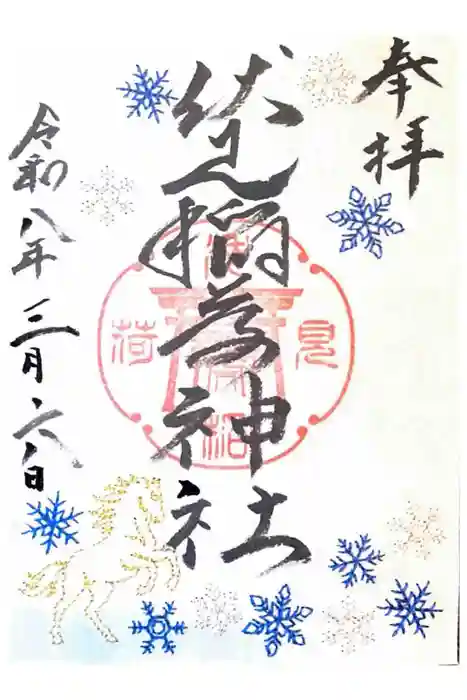 奉拝
伏見稲荷神社
令和八年三月六日
伏見稲荷